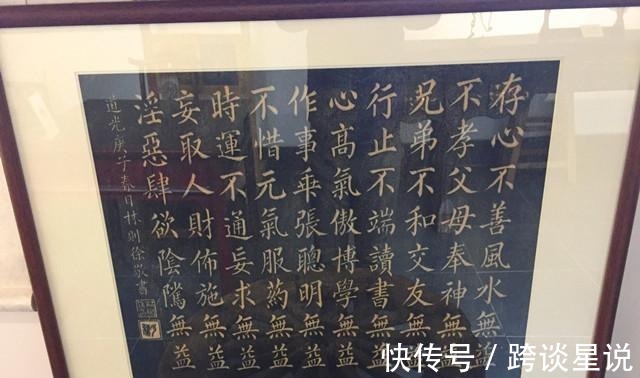 存心不善風水無益
不孝父母奉神無益
兄弟不和交友無益
行止不端讀書無益
心髙氣傲博學無益
作事乖張聰明無益
不惜元氣服葯無益
時運不通妄求無益
妄取人財佈施無益
淫惡肆欲陰騭無益
道光庚子春日林則徐敬書
快传号/跨谈星说